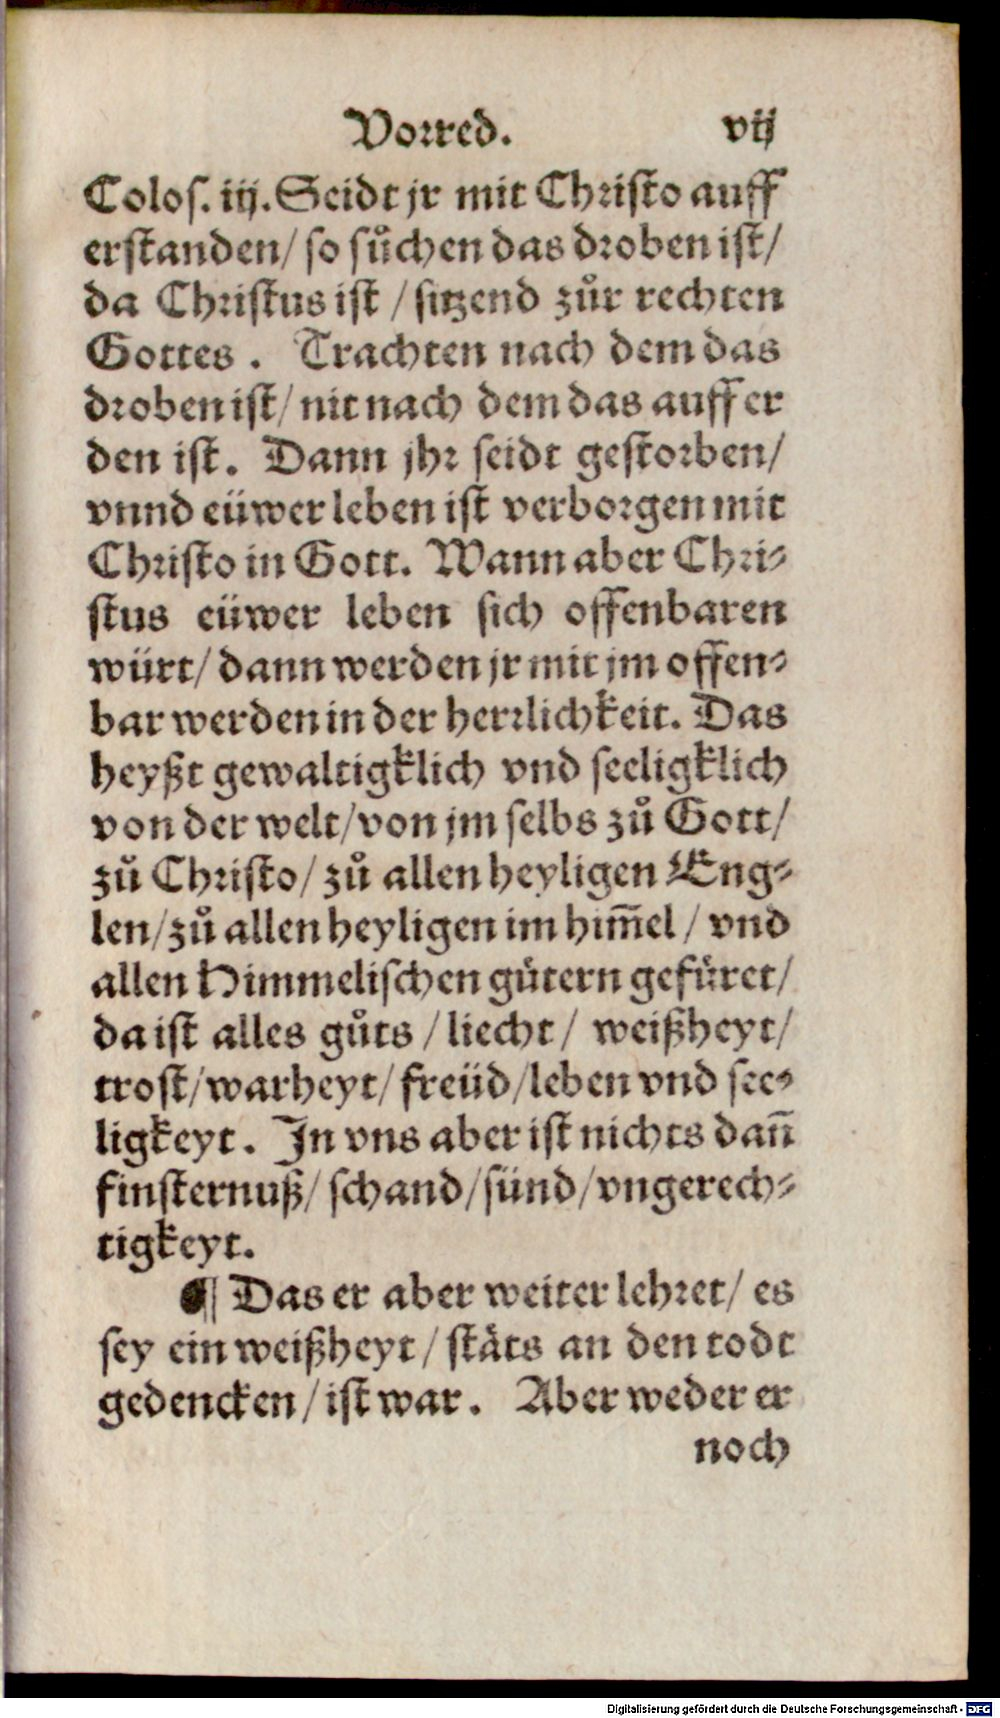 Vorred. vij
Colos. iij. Seidt jr mit Christo auff
erstanden/ so sůchen das droben ist/
da Christus ist / sitzend zůr rechten
Gottes . Trachten nach dem das
droben ist/ nit nach dem das auff er
den ist. Dann jhr seidt gestorben/
vnnd eüwer leben ist verborgen mit
Christo in Gott. Wann aber Chri⸗
stus eüwer leben sich offenbaren
würt/ dann werden jr mit jm offen⸗
bar werden in der herrlichkeit. Das
heyßt gewaltigklich vnd seeligklich
von der welt/ von jm selbs zů Gott/
zů Christo/ zů allen heyligen Eng⸗
len/ zů allen heyligen im him̄el / vnd
allen Himmelischen gütern gefüret/
da ist alles gůts / liecht / weißheyt/
trost/ warheyt/ freüd/ leben vnd see⸗
ligkeyt. In vns aber ist nichts dañ
finsternuß/ schand/ sünd/ vngerech⸗
tigkeyt.
¶ Das er aber weiter lehret/ es
sey ein weißheyt / stäts an den todt
gedencken / ist war. Aber weder er
noch
Digitalisierung gefördert durch die Deutsche Forschungsgemeinschaft - DFG